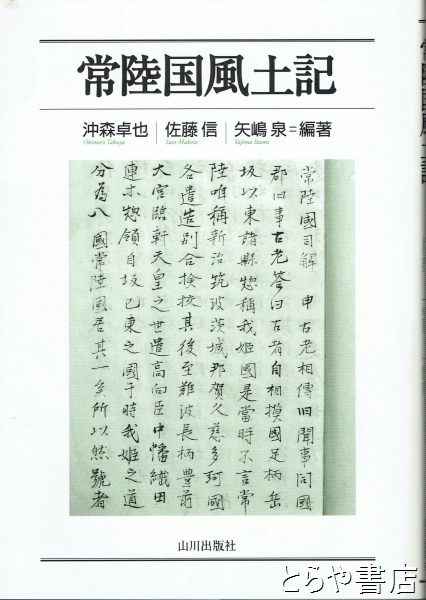 常陸国風土記
沖森卓也 佐藤信 矢嶋泉＝編著
Okimori Takuya Sato Makoto Yajima Izumi
常陸國司解 申古老相傳旧聞事問國
郡旧事古老答曰古者自相摸國足柄岳
坂以東諸縣惣稱我姫國是當時不言常
陸唯稱新治筑波茨城那賀久慈多珂國
各遣造別令檢挍其後至難波長柄豊前
大宮臨軒天皇之世遣高向臣中幡織田
連才惣領自坂已東之國于時我姫之道
分為八國常陸國居其一矣所以然號者
山川出版社
常陸国風土記
とらや書店